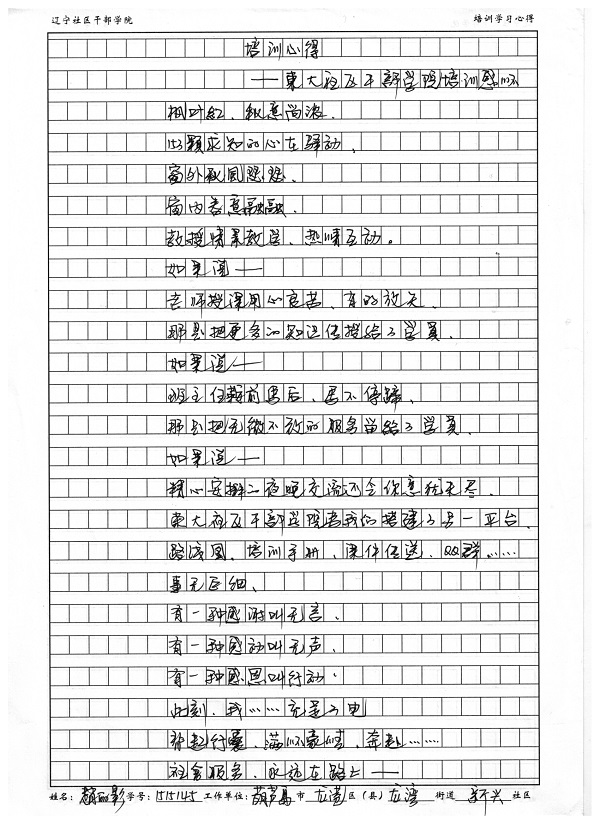 辽宁社区干部学院 培训学习心得
培训心得
——东大社区干部学院培训感怀
枫叶红、秋意尚浓、
152颗求知的心在驿动、
窗外秋风瑟瑟、
窗内春意融融、
教授倾囊教学、热情互动。
如果说——
老师授课用心良苦、有的放矢、
那是把更多的知识传授给了学员、
如果说——
班主任鞍前马后、马不停蹄、
那是把无微不致的服务留给了学员、
如果说——
精心安排二夜晚交流还会你意犹未尽、
东大社区干部学院为我们搭建了另一平台、
路线图、培训手册、课件传送、QQ群……
事无巨细、
有一种感谢叫无言、
有一种感动叫无声、
有一种感恩叫行动、
此刻、我……充足了电
背起行囊、满怀豪情、奔赴……
社会服务、永远在路上——
姓名: 丽影 学号: 1515145 工作单位: 葫芦岛 市 龙港 区(县) 龙湾 街道 新兴 社区